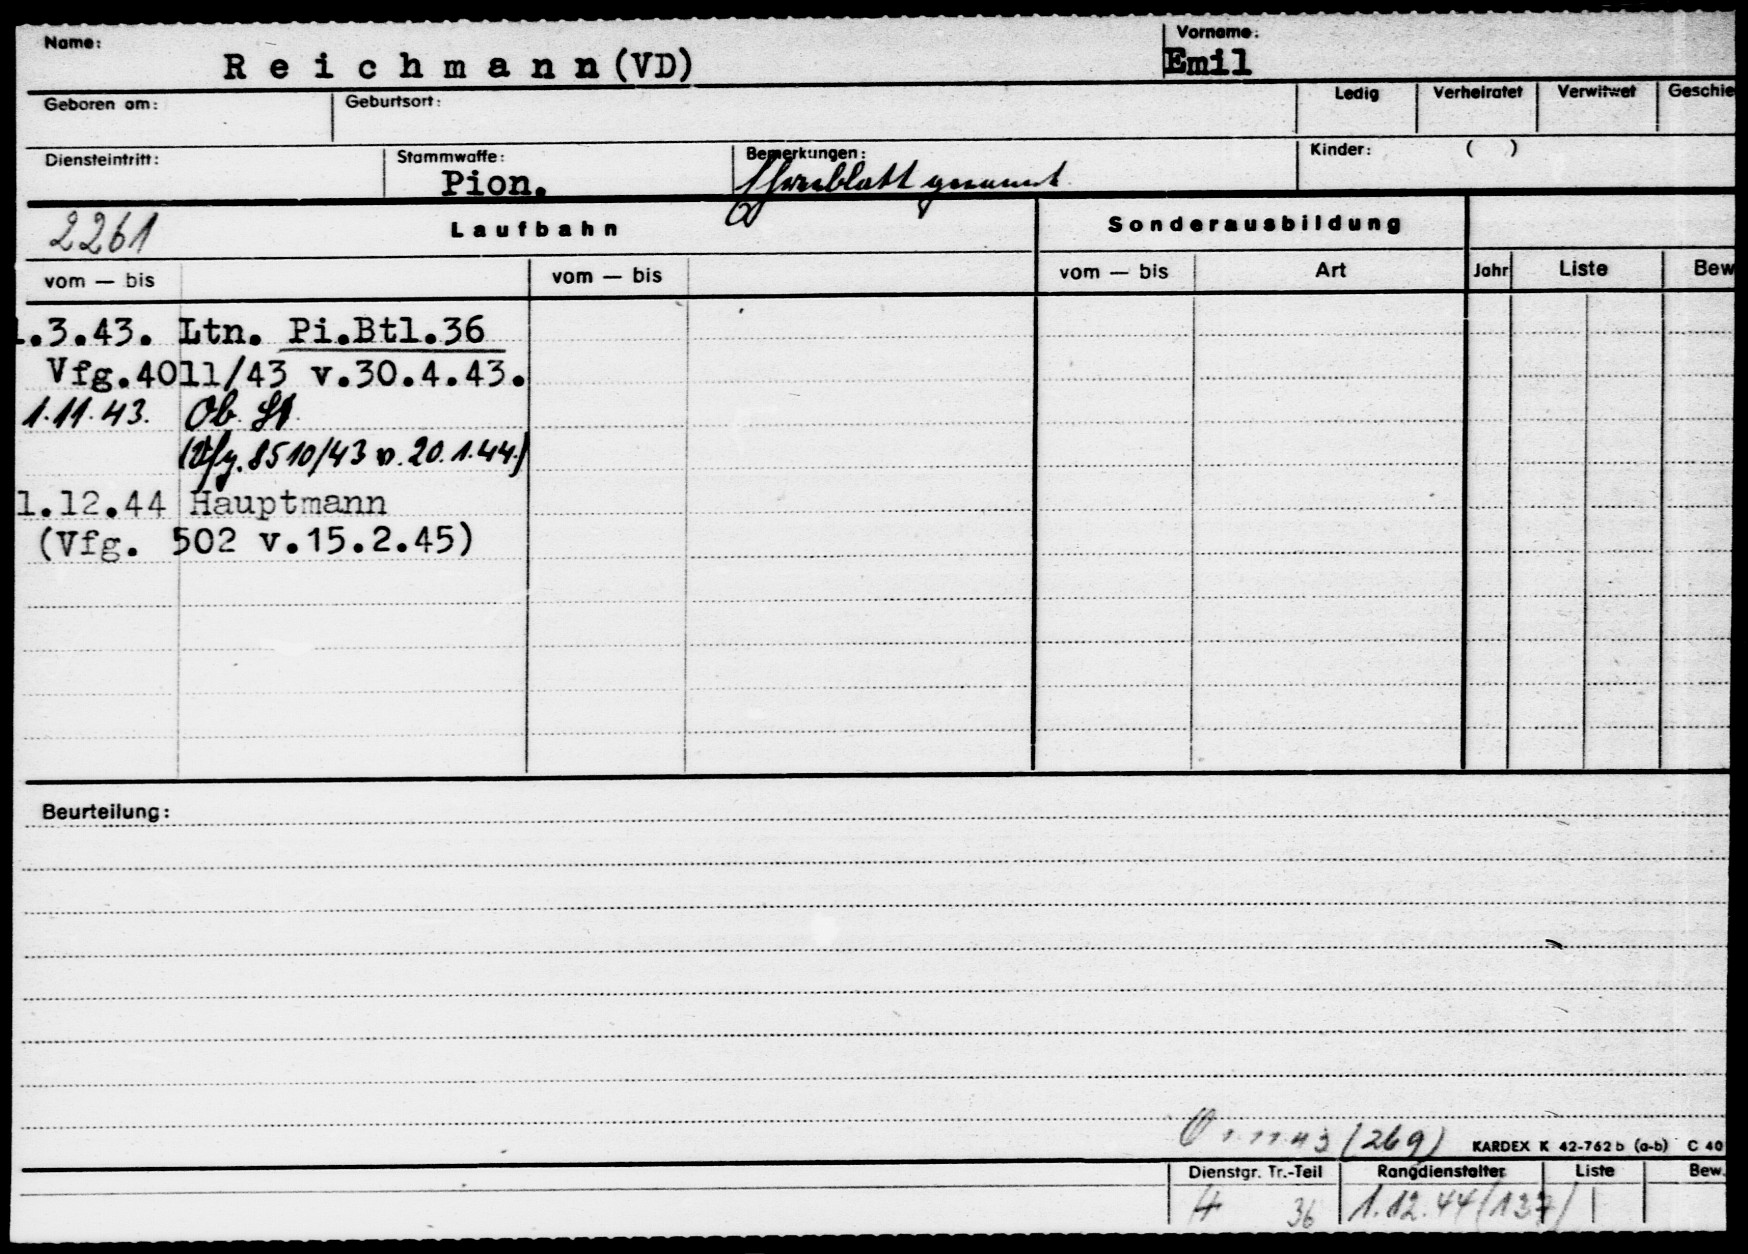 Name:
Vorname:
Reichmann (VD)
Emil
Geboren am:
Geburtsort:
Ledig
Verheiratet
Verwitwet
Geschie
Diensteintritt:
Stammwaffe:
Bemerkungen:
Kinder: ( )
Pion.
Ehrenblatt genannt
2261
Laufbahn
Sonderausbildung
vom — bis
vom — bis
vom — bis
Art
Jahr
Liste
Bew
1.3.43. Ltn. Pi.Btl.36
Vfg.4011/43 v.30.4.43.
1.11.43. Ob. Lt.
(Vfg. 8510/43 v. 20.1.44.)
1.12.44 Hauptmann
(Vfg. 502 v.15.2.45)
Beurteilung:
O 1.11.43 (269)
KARDEX K 42-762 b (a-b) C 40
Dienstgr. Tr.-Teil
Rangdienstalter
Liste
Bew.
H 36
1.12.44 (137)